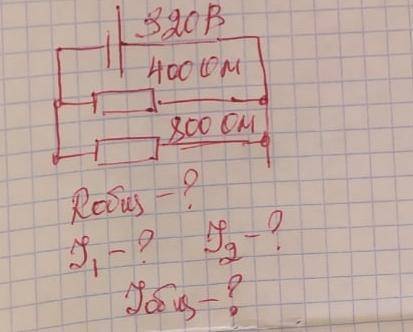 320В
400 Ом
800 Ом
Rобщ - ?
I₁ - ? I₂ - ?
Iобщ - ?